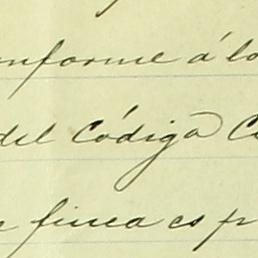 onforme á lo
del Códiga C
finca es pr